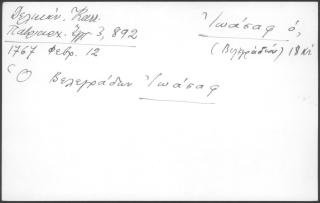 Δελικάν. Καλλ.
Πατριαρχ. Ἔγγρ. 3, 892
1767 Φεβρ. 12
Ἰωάσαφ ὁ,
(Βελιγράδων) 18 αἰ
Ὁ Βελεγράδων Ἰωάσαφ